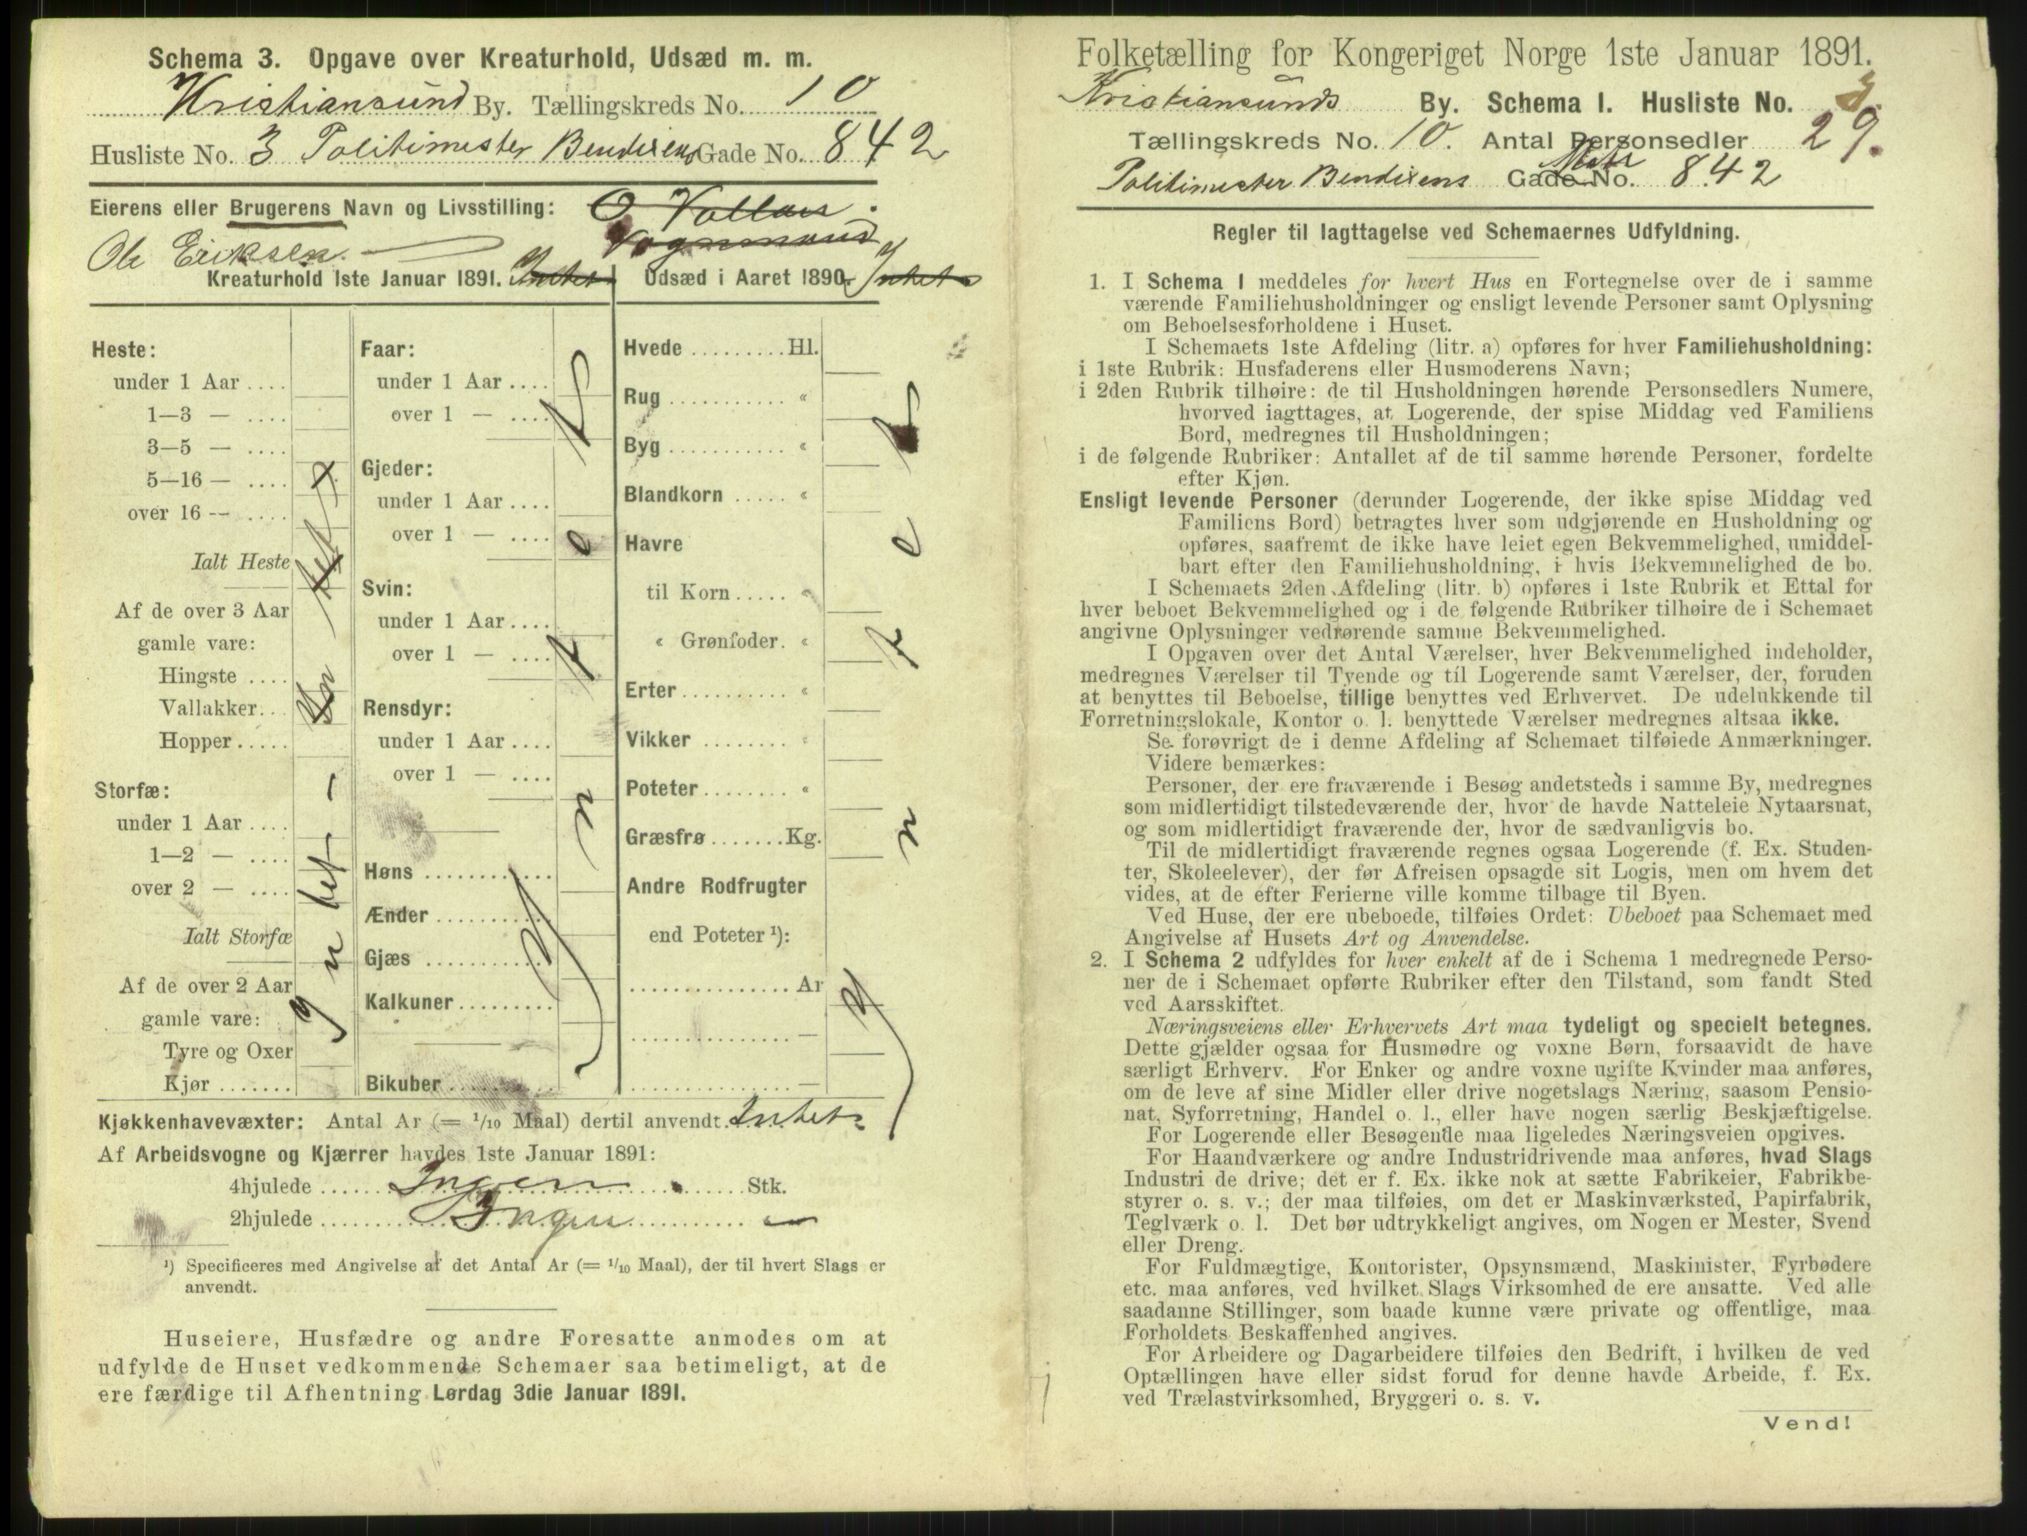 Schema 3. Opgave over Kreaturhold, Udsæd m. m.
Kristiansund By. Tællingskreds No. 10
Husliste No. 3 Politimester Bendixens Gade No. 842
Eierens eller Brugerens Navn og Livsstilling: O
Vognmand
Ole Eriksen.
Kreaturhold 1ste Januar 1891. Intet
Udsæd i Aaret 1890. Intet
Heste:
under 1 Aar ....
1—3 — ....
3—5 — ....
5—16 — ....
over 16 — ....
Ialt Heste
Af de over 3 Aar
gamle vare:
Hingste ....
Vallakker...
Hopper.....
Storfæ:
under 1 Aar ....
1—2 — ....
over 2 — ....
Ialt Storfæ
Af de over 2 Aar
gamle vare:
Tyre og Oxer
Kjør .......
Intet
Intet —
Faar:
under 1 Aar ....
over 1 — ....
Gjeder:
under 1 Aar ....
over 1 — ....
Svin:
under 1 Aar ....
over 1 — ....
Rensdyr:
under 1 Aar ....
over 1 — ....
Høns ............
Ænder ...........
Gjæs ............
Kalkuner .........
Bikuber ..........
Intet
Hvede ......... Hl.
Rug ........... «
Byg ........... «
Blandkorn ..... «
Havre
til Korn ..... «
« Grønfoder. «
Erter .......... «
Vikker ........ «
Poteter ........ «
Græsfrø ....... Kg.
Andre Rodfrugter
end Poteter ¹):
............... Ar
............... —
............... —
Intet
Kjøkkenhavevæxter: Antal Ar (= 1/10 Maal) dertil anvendt. Intet
Af Arbeidsvogne og Kjærrer havdes 1ste Januar 1891:
4hjulede ...... Ingen ...... Stk.
2hjulede ...... Ingen ...... —
¹) Specificeres med Angivelse af det Antal Ar (= 1/10 Maal), der til hvert Slags er
anvendt.
Huseiere, Husfædre og andre Foresatte anmodes om at
udfylde de Huset vedkommende Schemaer saa betimeligt, at de
ere færdige til Afhentning Lørdag 3die Januar 1891.
Folketælling for Kongeriget Norge 1ste Januar 1891.
Kristiansunds By. Schema I. Husliste No. 3.
Tællingskreds No. 10. Antal Personsedler 29.
Politimester Bendixens Gade No. 842
Regler til Iagttagelse ved Schemaernes Udfyldning.
1. I Schema I meddeles for hvert Hus en Fortegnelse over de i samme
værende Familiehusholdninger og ensligt levende Personer samt Oplysning
om Beboelsesforholdene i Huset.
I Schemaets 1ste Afdeling (litr. a) opføres for hver Familiehusholdning:
i 1ste Rubrik: Husfaderens eller Husmoderens Navn;
i 2den Rubrik tilhøire: de til Husholdningen hørende Personsedlers Numere,
hvorved iagttages, at Logerende, der spise Middag ved Familiens
Bord, medregnes til Husholdningen;
i de følgende Rubriker: Antallet af de til samme hørende Personer, fordelte
efter Kjøn.
Ensligt levende Personer (derunder Logerende, der ikke spise Middag ved
Familiens Bord) betragtes hver som udgjørende en Husholdning og
opføres, saafremt de ikke have leiet egen Bekvemmelighed, umiddel-
bart efter den Familiehusholdning, i hvis Bekvemmelighed de bo.
I Schemaets 2den Afdeling (litr. b) opføres i 1ste Rubrik et Ettal for
hver beboet Bekvemmelighed og i de følgende Rubriker tilhøire de i Schemaet
angivne Oplysninger vedrørende samme Bekvemmelighed.
I Opgaven over det Antal Værelser, hver Bekvemmelighed indeholder,
medregnes Værelser til Tyende og til Logerende samt Værelser, der, foruden
at benyttes til Beboelse, tillige benyttes ved Erhvervet. De udelukkende til
Forretningslokale, Kontor o. l. benyttede Værelser medregnes altsaa ikke.
Se forøvrigt de i denne Afdeling af Schemaet tilføiede Anmærkninger.
Videre bemærkes:
Personer, der ere fraværende i Besøg andetsteds i samme By, medregnes
som midlertidigt tilstedeværende der, hvor de havde Natteleie Nytaarsnat,
og som midlertidigt fraværende der, hvor de sædvanligvis bo.
Til de midlertidigt fraværende regnes ogsaa Logerende (f. Ex. Studen-
ter, Skoleelever), der før Afreisen opsagde sit Logis, men om hvem det
vides, at de efter Ferierne ville komme tilbage til Byen.
Ved Huse, der ere ubeboede, tilføies Ordet: Ubeboet paa Schemaet med
Angivelse af Husets Art og Anvendelse.
2. I Schema 2 udfyldes for hver enkelt af de i Schema 1 medregnede Perso-
ner de i Schemaet opførte Rubriker efter den Tilstand, som fandt Sted
ved Aarsskiftet.
Næringsveiens eller Erhvervets Art maa tydeligt og specielt betegnes.
Dette gjælder ogsaa for Husmødre og voxne Børn, forsaavidt de have
særligt Erhverv. For Enker og andre voxne ugifte Kvinder maa anføres,
om de leve af sine Midler eller drive nogetslags Næring, saasom Pensio-
nat, Syforretning, Handel o. l., eller have nogen særlig Beskjæftigelse.
For Logerende eller Besøgende maa ligeledes Næringsveien opgives.
For Haandværkere og andre Industridrivende maa anføres, hvad Slags
Industri de drive; det er f. Ex. ikke nok at sætte Fabrikeier, Fabrikbe-
styrer o. s. v.; der maa tilføies, om det er Maskinværksted, Papirfabrik,
Teglværk o. l. Det bør udtrykkeligt angives, om Nogen er Mester, Svend
eller Dreng.
For Fuldmægtige, Kontorister, Opsynsmænd, Maskinister, Fyrbødere
etc. maa anføres, ved hvilket Slags Virksomhed de ere ansatte. Ved alle
saadanne Stillinger, som baade kunne være private og offentlige, maa
Forholdets Beskaffenhed angives.
For Arbeidere og Dagarbeidere tilføies den Bedrift, i hvilken de ved
Optællingen have eller sidst forud for denne havde Arbeide, f. Ex.
ved Trælastvirksomhed, Bryggeri o. s. v.
Vend!